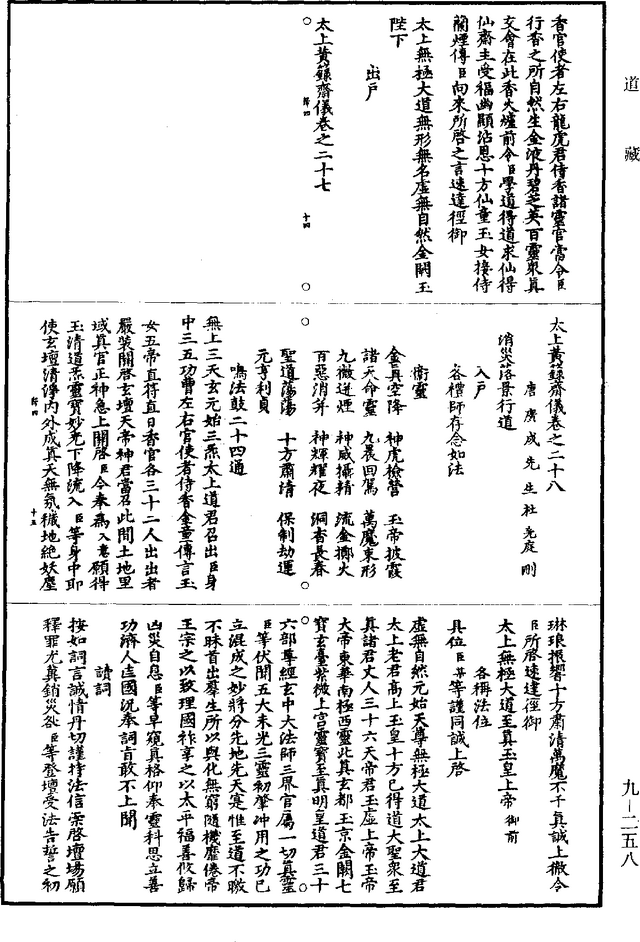 道藏
香官使者左右龍虎君侍香諸靈官當令臣
行香之所自然生金液丹碧芝英百靈眾真
交會在此香火爐前令臣學道得道求仙得
仙齋主受福幽顯沾恩十方仙童玉女接侍
蘭煙傳臣向來所啓之言速達徑御
太上無極大道無形無名虛無自然金闕玉
陛下
出戶
太上黃籙齋儀卷之二十七
十四
太上黃籙齋儀卷之二十八
唐廣成先生杜光庭刪
消災落景行道
入戶
各禮師存念如法
衛靈
金真空降　神虎檢營　玉帝披霞
諸天命靈　九晨回駕　萬魔束形
九微迸煙　神威攝精　流金擲火
百惡消并　神輝耀夜　洞香長春
聖道蕩蕩　十方肅清　保制劫運
元亨利貞
鳴法鼓二十四通
無上三天玄元始三炁太上道君召出臣身
中三五功曹左右官使者侍香金童傳言玉
女五帝直符直日香官各三十二人出出者
嚴裝關啓玄壇天帝神君當召此間土地里
域真官正神急上關啓臣今奉為入意願得
玉清道炁靈寶妙光下降流入臣等身中即
使玄壇清淨內外成真天無氛穢地絕妖塵
十五
琳琅振響十方肅清萬魔不干真誠上徹令
臣所啓速達徑御
太上無極大道至真玉皇上帝御前
各稱法位
具位臣某等謹同誠上啓
虛無自然元始天尊無極大道太上大道君
太上老君高上玉皇十方已得道大聖眾至
真諸君丈人三十六天帝君玉虛上帝玉帝
大帝東華南極西靈北真玄都玉京金闕七
寶玄臺紫微上宮靈寶至真明皇道君三十
六部尊經玄中大法師三界官屬一切真靈
臣等伏聞五大未光三靈初肇沖用之功已
立混成之妙將分先地先天寔惟至道不皦
不昧首出羣生所以與化無窮隨機靡倦帝
王宗之以致理國祚享之以太平福善攸歸
凶災自息臣等早窺真格仰奉靈科思立善
功濟人佐國況奉詞旨敢不上聞
讀詞
按如詞言誠情丹切謹持法信崇啓壇場願
釋罪尤冀銷災咎臣等登壇受法告誓之初
九―二五八